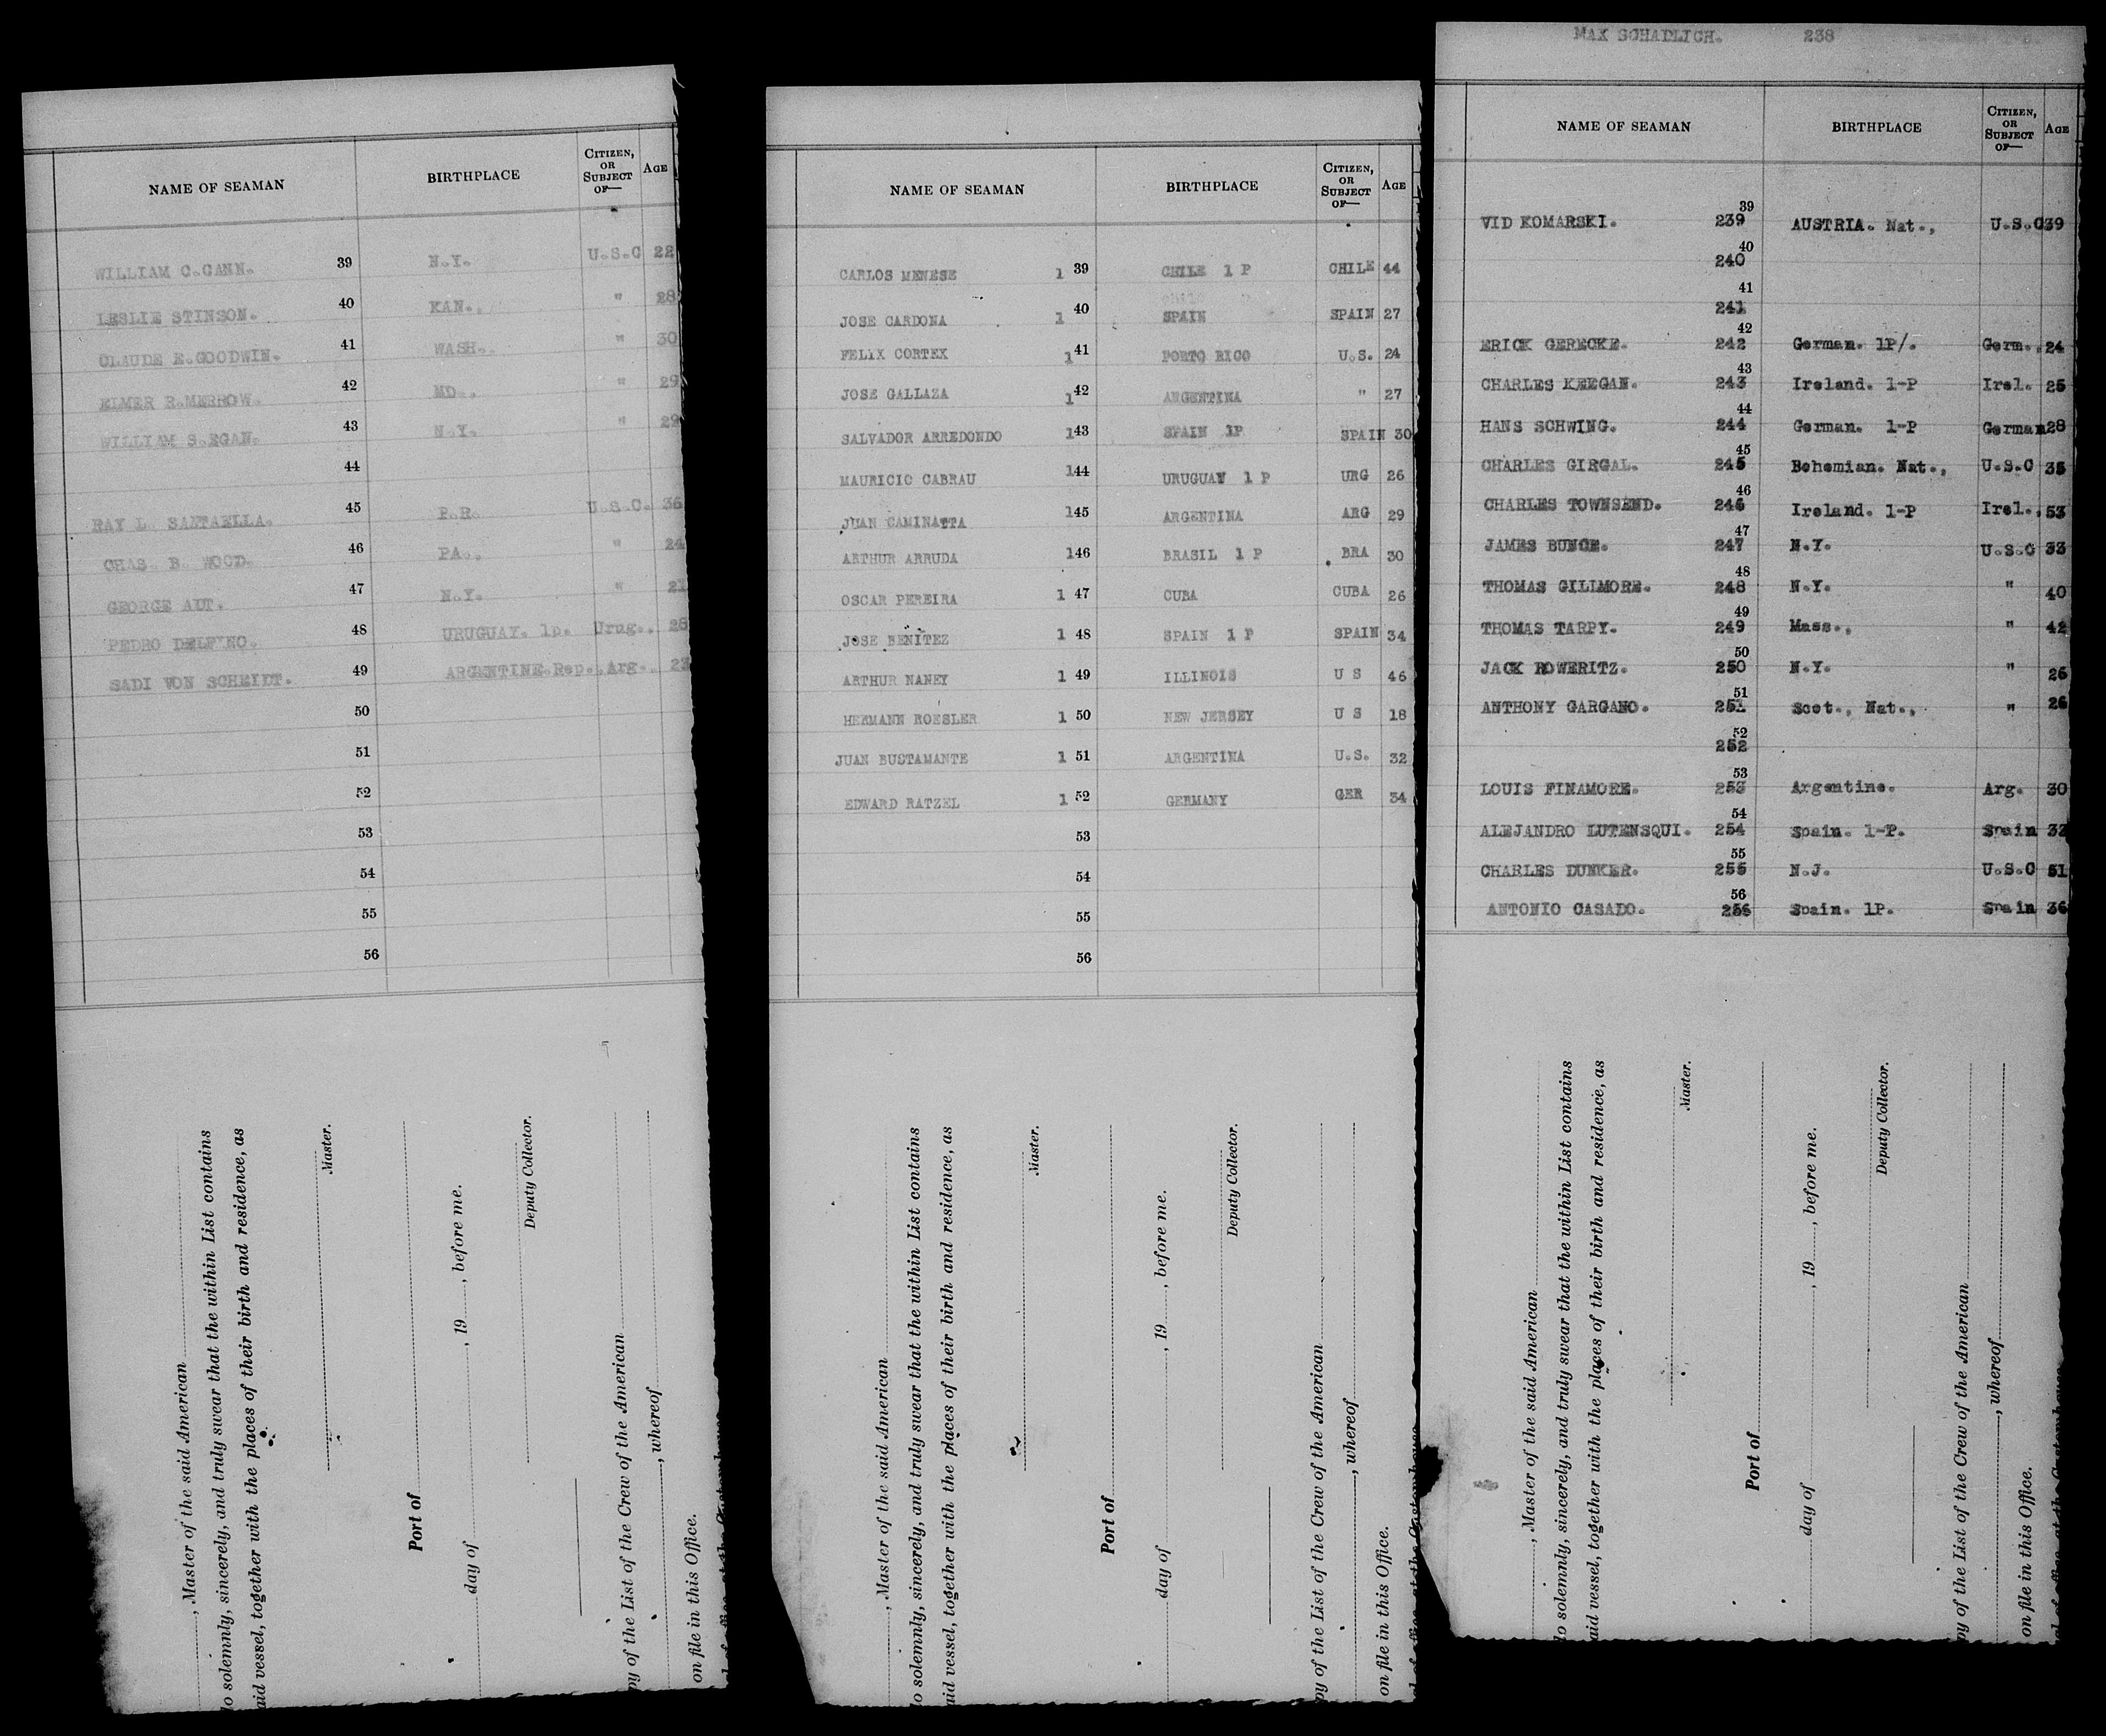 NAME OF SEAMAN BIRTHPLACE CITIZEN, OR SUBJECT OF— AGE
WILLIAM C.CANN. 39 N.Y. U.S.C 22
LESLIE STINSON. 40 KAN., " 28
CLAUDE E.GOODWIN. 41 WASH., " 30
ELMER R.MERROW. 42 MD., " 29
WILLIAM S.EGAN. 43 N.Y. " 29
44
RAY L. SANTAELLA. 45 P.R. U.S.C. 36
CHAS. B. WOOD. 46 PA., " 24
GEORGE AUT. 47 N.Y. " 21
PEDRO DELFYNO. 48 URUGUAY. 1p. Urug., 28
SADI VON SCHEIDT. 49 ARGENTINE.Rep., Arg., 23
50
51
52
53
54
55
56
, Master of the said American
do solemnly, sincerely, and truly swear that the within List contains
aid vessel, together with the places of their birth and residence, as
Master.
Port of
day of , 19 , before me.
Deputy Collector.
py of the List of the Crew of the American
, whereof
on file in this Office.
NAME OF SEAMAN BIRTHPLACE CITIZEN, OR SUBJECT OF— AGE
CARLOS MENESE 1 39 CHILE 1 P CHILE 44
JOSE CARDONA 1 40 SPAIN SPAIN 27
FELIX CORTEX 1 41 PORTO RICO U.S. 24
JOSE GALLAZA 1 42 ARGENTINA " 27
SALVADOR ARREDONDO 1 43 SPAIN 1P SPAIN 30
MAURICIO CABRAU 1 44 URUGUAY 1 P URG 26
JUAN CAMINATTA 1 45 ARGENTINA ARG 29
ARTHUR ARRUDA 1 46 BRASIL 1 P BRA 30
OSCAR PEREIRA 1 47 CUBA CUBA 26
JOSE BENITEZ 1 48 SPAIN 1 P SPAIN 34
ARTHUR NANEY 1 49 ILLINOIS U S 46
HERMANN ROESLER 1 50 NEW JERSEY U S 18
JUAN BUSTAMANTE 1 51 ARGENTINA U.S. 32
EDWARD RATZEL 1 52 GERMANY GER 34
53
54
55
56
, Master of the said American
do solemnly, sincerely, and truly swear that the within List contains
aid vessel, together with the places of their birth and residence, as
Master.
Port of
day of , 19 , before me.
Deputy Collector.
py of the List of the Crew of the American
, whereof
on file in this Office.
MAX SCHADLICH. 238
NAME OF SEAMAN BIRTHPLACE CITIZEN, OR SUBJECT OF— AGE
VID KOMARSKI. 39 239 AUSTRIA. Nat., U.S.C 39
40 240
41 241
ERICK GERECKE. 42 242 German. 1P/. Germ., 24
CHARLES KEEGAN. 43 243 Ireland. 1-P Irel. 25
HANS SCHWING. 44 244 German. 1-P German 28
CHARLES GIRGAL. 45 245 Bohemian. Nat., U.S.C 35
CHARLES TOWNSEND. 46 246 Ireland. 1-P Irel., 53
JAMES BUNCE. 47 247 N.Y. U.S.C 33
THOMAS GILLMORE. 48 248 N.Y. " 40
THOMAS TARPY. 49 249 Mass., " 42
JACK ROWERITZ. 50 250 N.Y. " 26
ANTHONY GARGANO. 51 251 Scot., Nat., " 26
52 252
LOUIS FINAMORE. 53 253 Argentine. Arg. 30
ALEJANDRO LUTENSQUI. 54 254 Spain. 1-P. Spain 32
CHARLES DUNKER. 55 255 N.J. U.S.C 51
ANTONIO CASADO. 56 256 Spain. 1P. Spain 36
, Master of the said American
do solemnly, sincerely, and truly swear that the within List contains
aid vessel, together with the places of their birth and residence, as
Master.
Port of
day of , 19 , before me.
Deputy Collector.
py of the List of the Crew of the American
, whereof
on file in this Office.